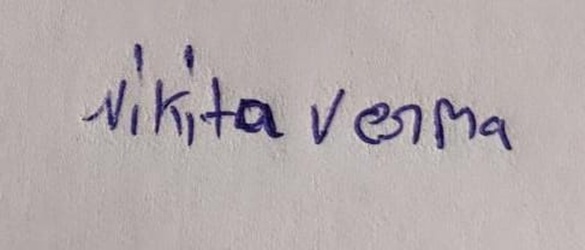 Nikita Verma